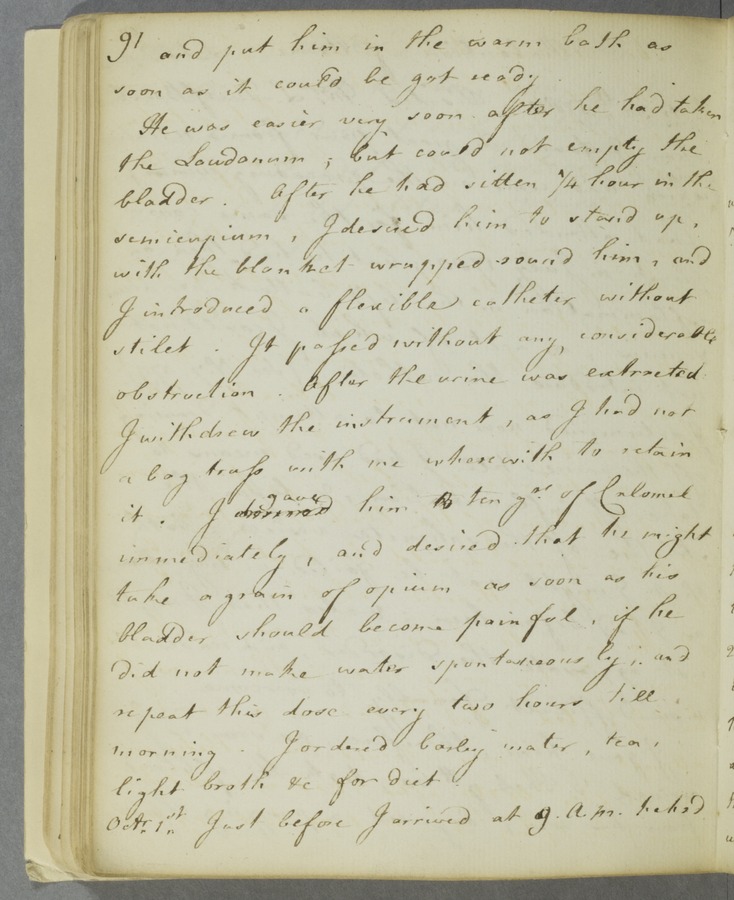 91 and put him in the warm bath as
soon as it could be got ready.
He was easier very soon after he had taken
the Laudanum ; but could not empty the
bladder. After he had sitten 1/4 hour in the
semicupium, I desired him to stand up,
with the blanket wrapped round him, and
I introduced a flexible catheter without
stilet. It passed without any considerable
obstruction. After the urine was extracted
I withdrew the instrument, as I had not
a bag truss with me wherewith to retain
it. I gave him ten grs. of Calomel
immediately, and desired that he might
take a grain of opium as soon as his
bladder should become painful, if he
did not make water spontaneously ; and
repeat this dose every two hours till
morning. I ordered barley water, tea,
light broth &c for diet.
Octr. 1st Just before I arrived at 9. A.m. he had